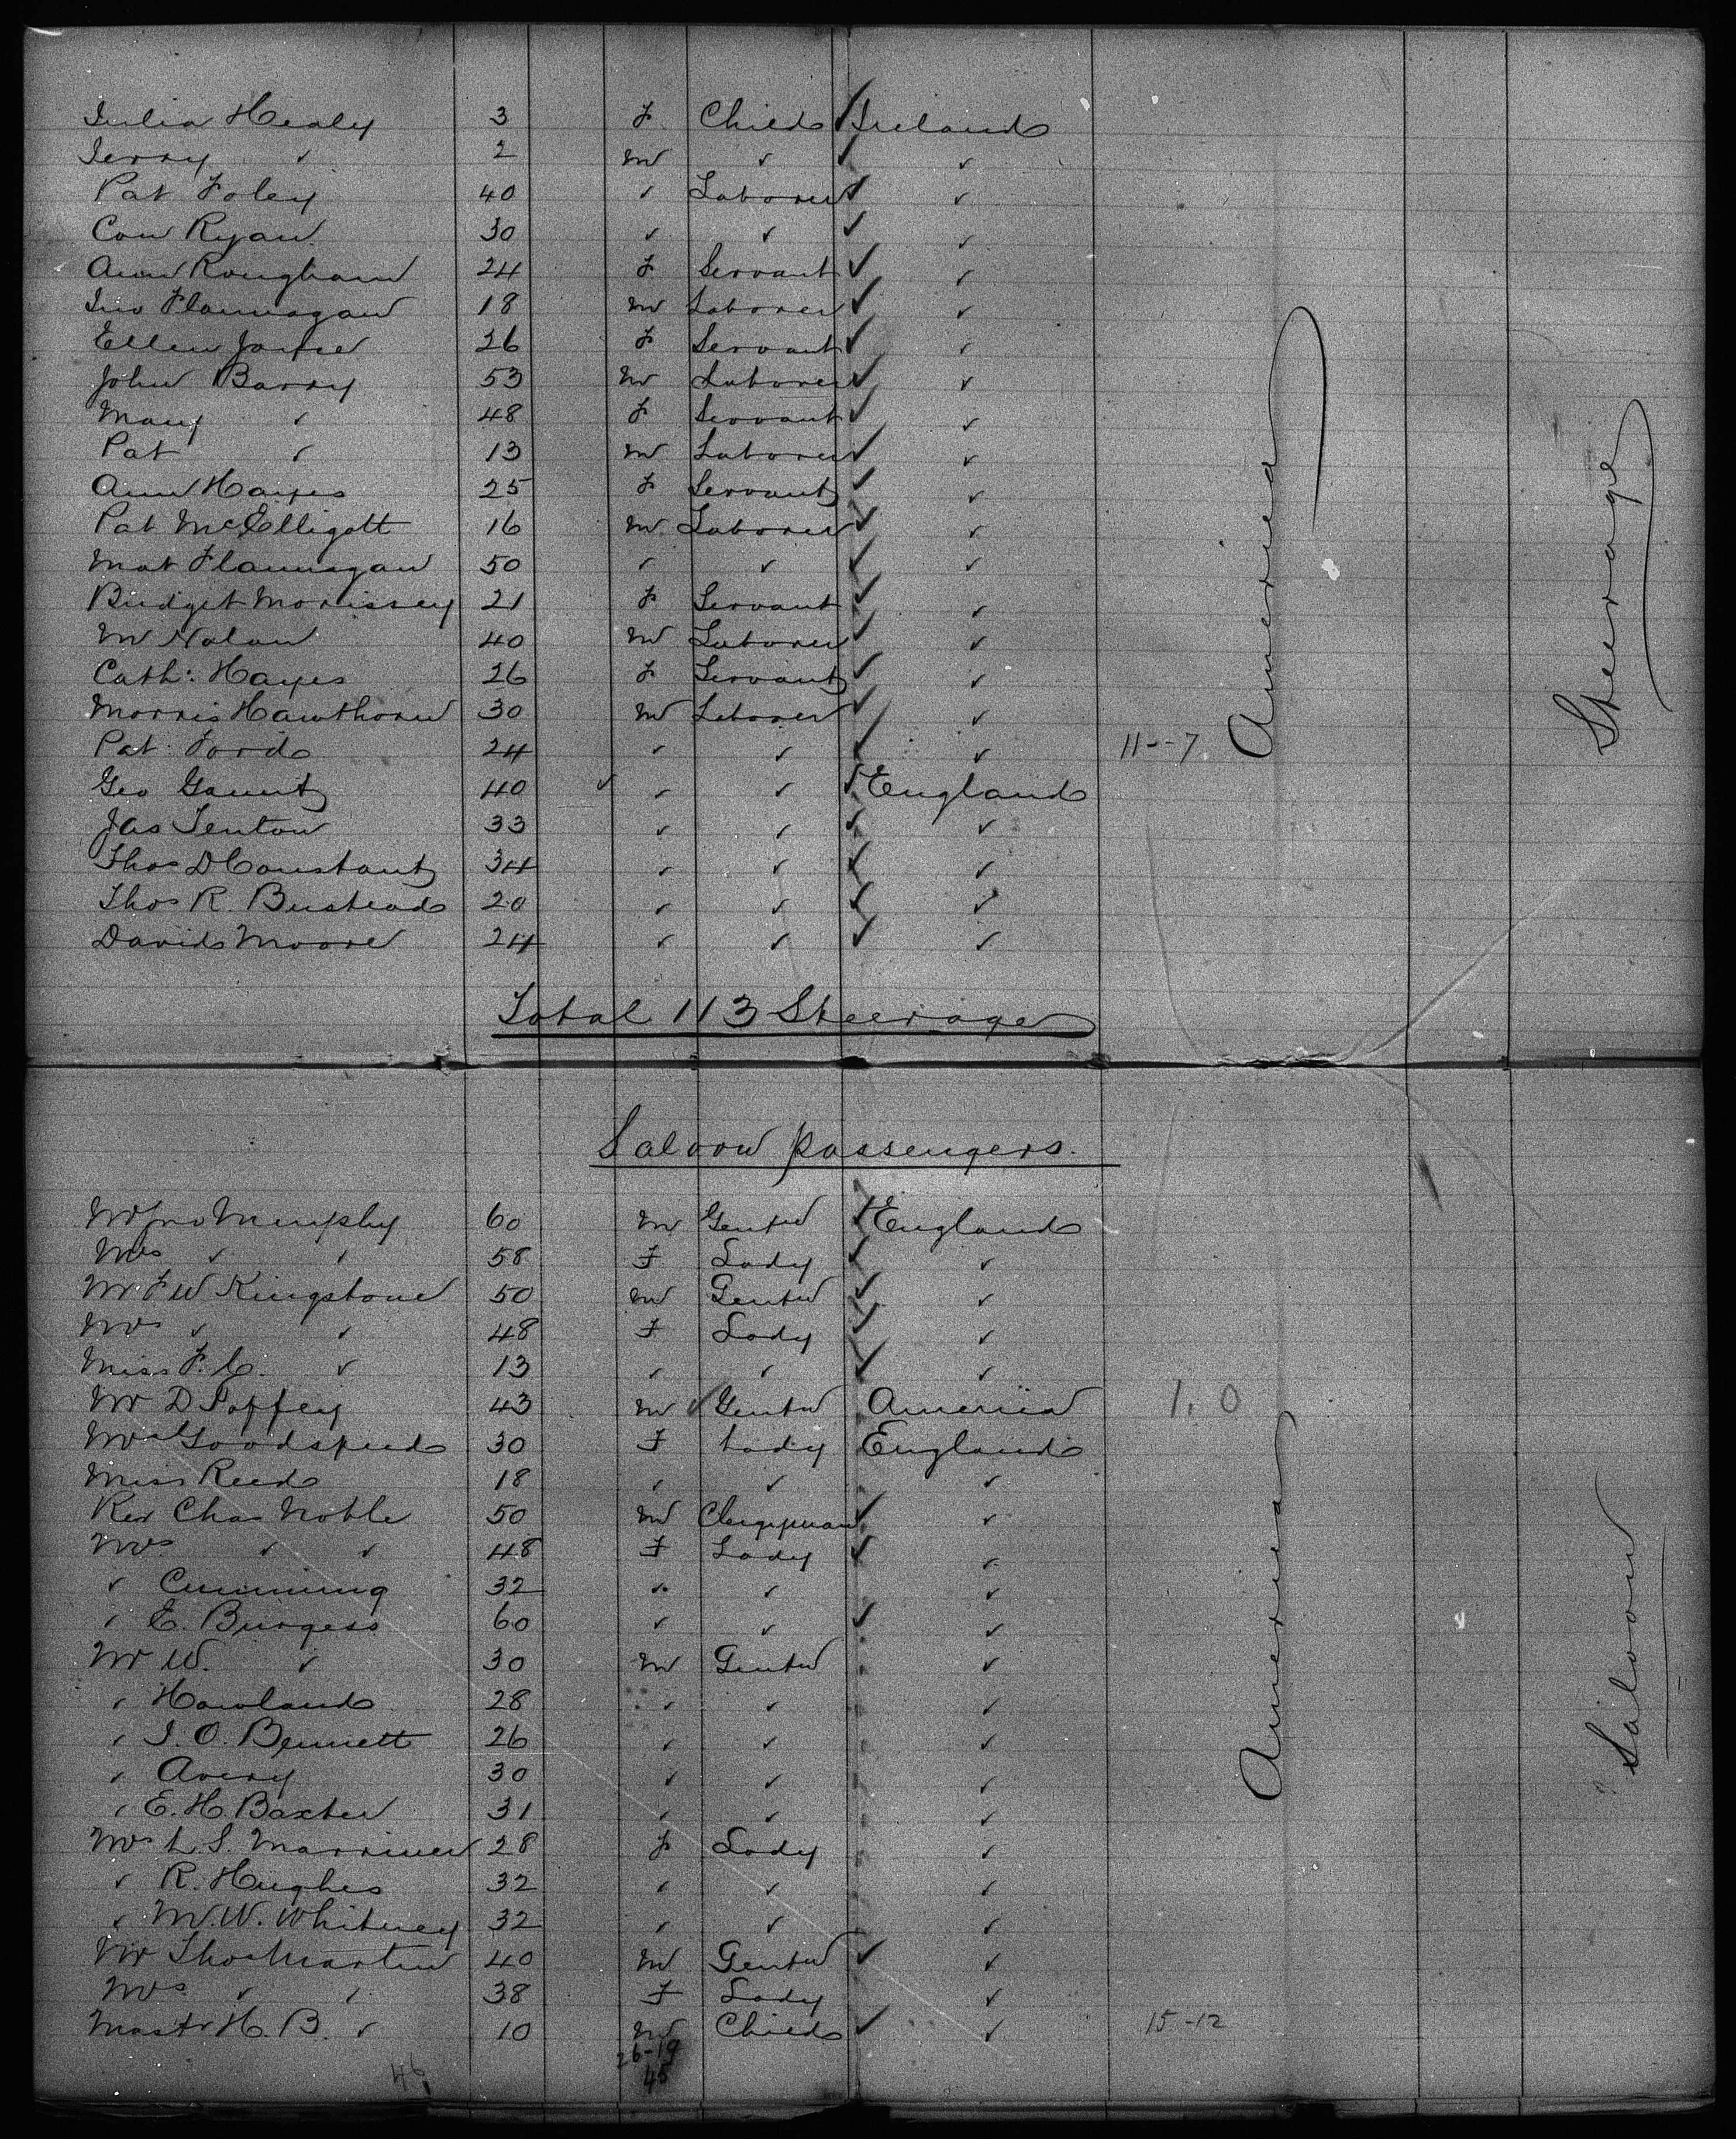 Julia Healy 3 F Child Ireland
Jerry " 2 M " "
Pat Foley 40 " Laborer "
Con Ryan 30 " " "
Ann Rougham 24 F Servant "
Jno Flannagan 18 M Laborer "
Ellen Joyce 26 F Servant "
John Barry 53 M Laborer "
Mary " 48 F Servant "
Pat " 13 M Laborer "
Ann Hayes 25 F Servant "
Pat McElligott 16 M Laborer "
Mat Flannagan 50 " " "
Bridget Morrissey 21 F Servant "
M Nolan 40 M Laborer "
Cath: Hayes 26 F Servant "
Morris Hawthorn 30 M Laborer "
Pat Ford 24 " " " 11--7
Geo Gauntz 40 " " England
Jas Fenton 33 " " "
Thos D Constant 34 " " "
Thos R. Bustead 20 " " "
David Moore 24 " " "
America
Steerage
Total 113 Steerage
Saloon passengers.
Mr Jno Murphy 60 M Gentn England
Mrs " " 58 F Lady "
Mr F W Kingstone 50 M Gentn "
Mrs " " 48 F Lady "
Miss F. C. " 13 " " "
Mr D 43 M Gentn America 1.0
Mrs Goodspeed 30 F Lady England
Miss Reed 18 " " "
Rev Chas Noble 50 M Clergyman "
Mrs " " 48 F Lady "
" Cumming 32 " " "
" E. Burgess 60 " " "
Mr W. " 30 M Gentn "
" Howland 28 " " "
" J. O. Bennett 26 " " "
" Avery 30 " " "
" E. H. Baxter 31 " " "
Mrs L. S. Marriner 28 F Lady "
" R. Hughes 32 " " "
" M. W. Whitney 32 " " "
Mr Thos Martin 40 M Gentn "
Mrs " " 38 F Lady "
Mastr H. B. " 10 M Child " 15-12
America
Saloon
26-19
46 45